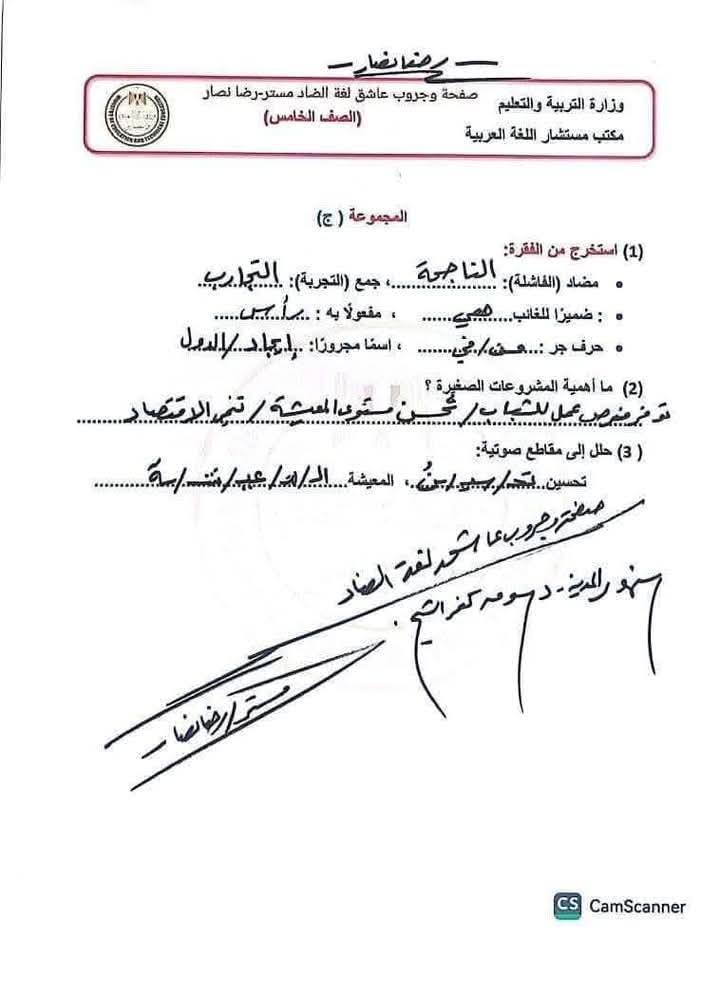 رضا نصار
وزارة التربية والتعليم
مكتب مستشار اللغة العربية
صفحة وجروب عاشق لغة الضاد مستر-رضا نصار
(الصف الخامس)
المجموعة (ج)
(1) استخرج من الفقرة:
• مضاد (الفاشلة): الناجحة، جمع (التجربة): التجارب
• : ضميرًا للغائب هي ، مفعولًا به : رأس
• حرف جر : من/في ، اسمًا مجرورًا: إيجاد/الدول
(2) ما أهمية المشروعات الصغيرة ؟
توفر فرص عمل للشباب/تحسن مستوى المعيشة/تنمي الاقتصاد
(3) حلل إلى مقاطع صوتية:
تحسين تحـ/سيـ/ن، المعيشة
صفحة وجروب عاشق لغة الضاد
سنهور المدينة - دسوق كفر الشيخ
مستر/رضا نصار
CS CamScanner